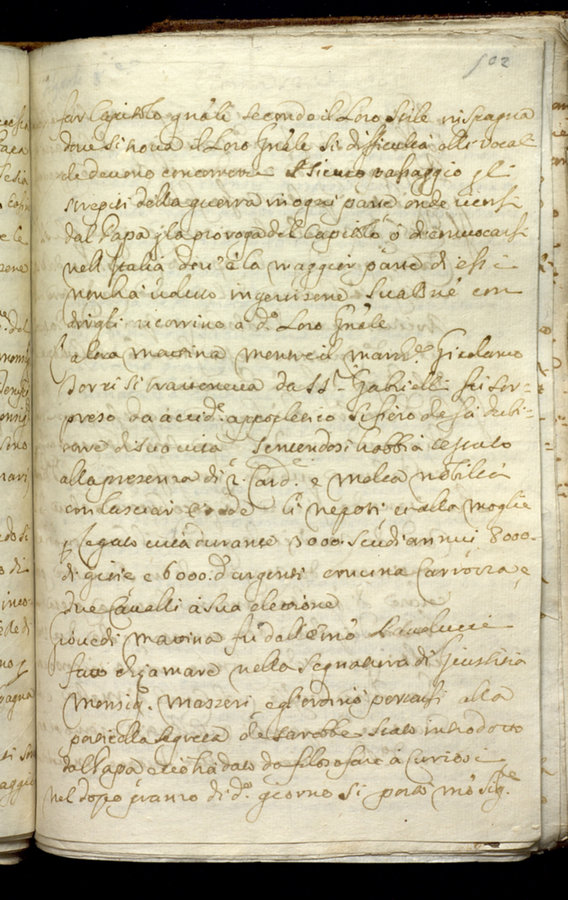 102
far Capitolo gn͠ale secondo il Loro stile in Spagna
dove si trova il Loro Gn͠ale si difficulta alli Vocali
che devono concorrere il sicuro passaggio p̱ li
strepiti della guerra in ogni parte onde
dal Papa p̱ la proroga del Capitolo ò di convocarsi
nell'Italia dov'è la maggior parte di essi
non ha voluto ingerirsene Sua Bn͠e con
dirgli ricorrino à d.º Loro Gn͠ale
L'altra mattina mentre il March.e Girolamo
si tratteneva da SS.ri Gabrielli fù sor-
preso da accid.e apopletico si fiero che fà dubi-
tare di sua vita sentendosi habbia testato
alla presenza di 2. Card.i e molta nobiltà
con lasciar erede li nepoti et alla moglie
p̱ legato vita durante 3000 scudi annui 8000
di gioie e 6000 d'argenti con una Carrozza, e
due Cavalli à sua elettione
Giovedi mattina fù dall'Em͠o
fatto chiamare nella Segnatura di Giustitia
Monsig.r Masseri, e gl'ordinò portarsi alla
porticella segreta che sarebbe stato introdotto
dal Papa e ciò ha dato da filosofare à Curiosi
Nel dopo pranzo di d.º giorno si portò Mo͠sig.re